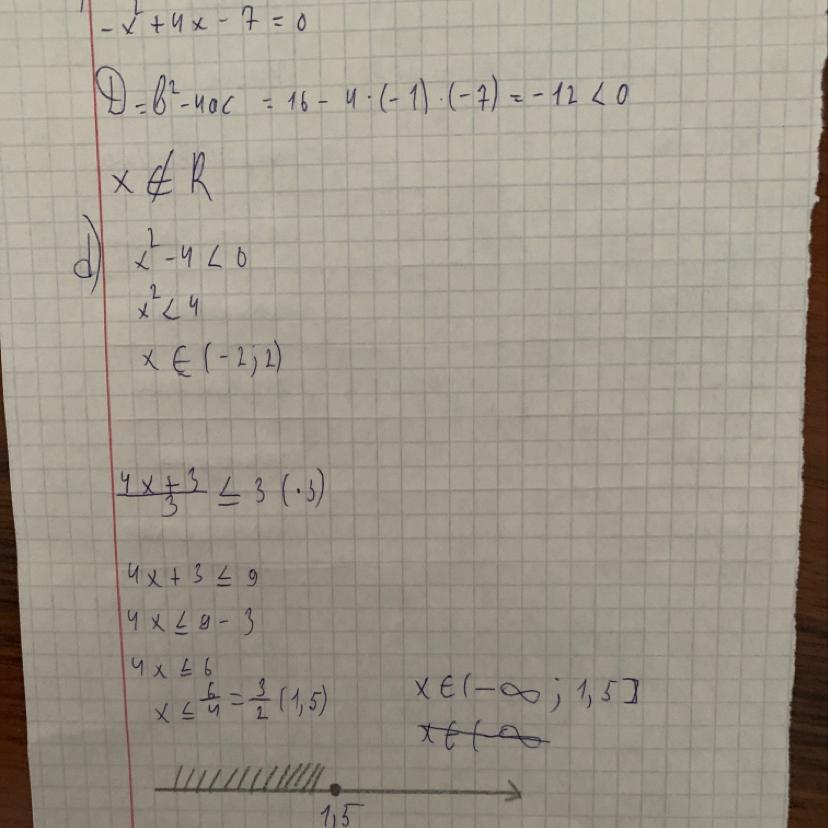 -x²+4x-7=0
D=b²-4ac =16-4·(-1)·(-7)=-12<0
x∉R
d) x²-4<0
x²<4
x∈(-2;2)
4x+3/3 ≤ 3 (·3)
4x+3≤9
4x≤9-3
4x≤6
x≤6/4=3/2(1,5)
x∈(-∞;1,5]
x∈(-∞
1,5